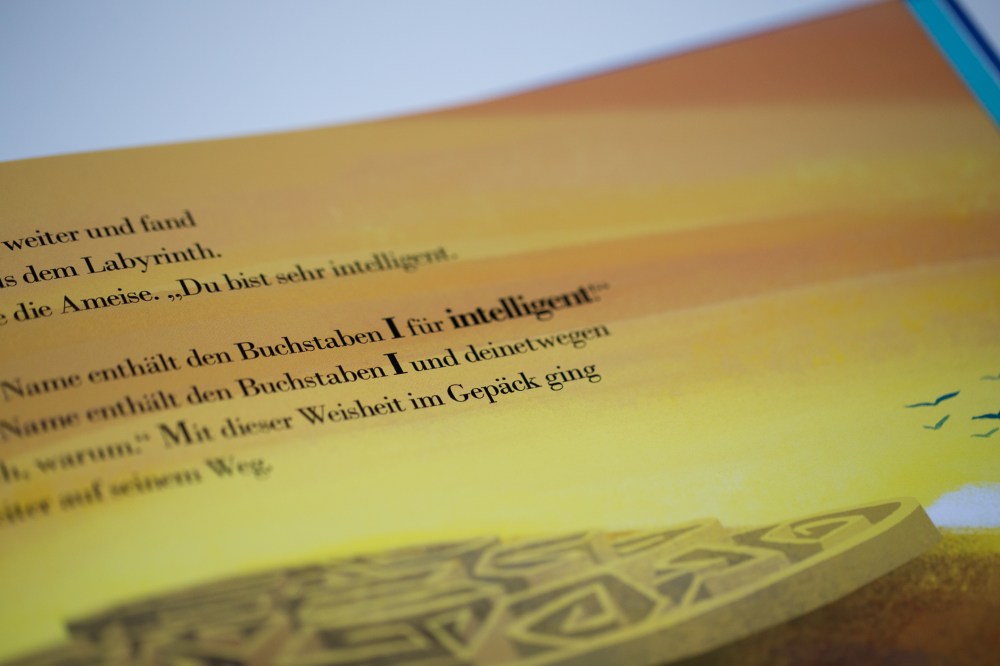 weiter und fand
dem Labyrinth.
die Ameise. „Du bist sehr intelligent.
Name enthält den Buchstaben I für intelligent!“
Name enthält den Buchstaben I und deinetwegen
warum.“ Mit dieser Weisheit im Gepäck ging
auf seinem Weg.